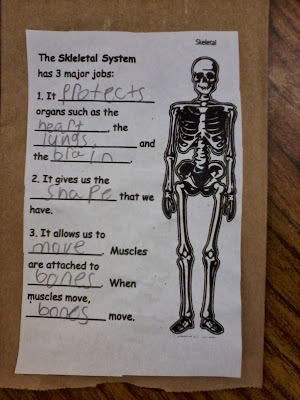 Skeletal
The Skleletal System
has 3 major jobs:
1. It protects
organs such as the
heart, the
lungs, and
the brain.
2. It gives us the
shape that we
have.
3. It allows us to
move. Muscles
are attached to
bones. When
muscles move,
bones move.